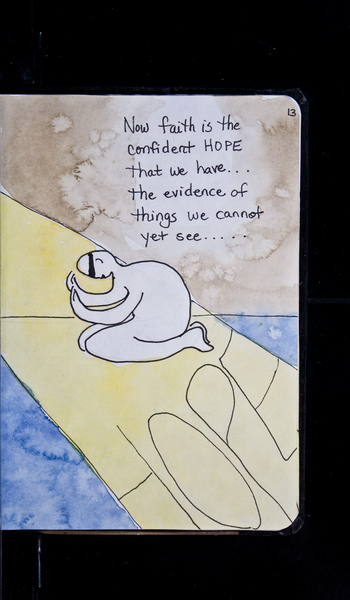 13
Now faith is the
confident HOPE
that we have...
the evidence of
things we cannot
yet see.....